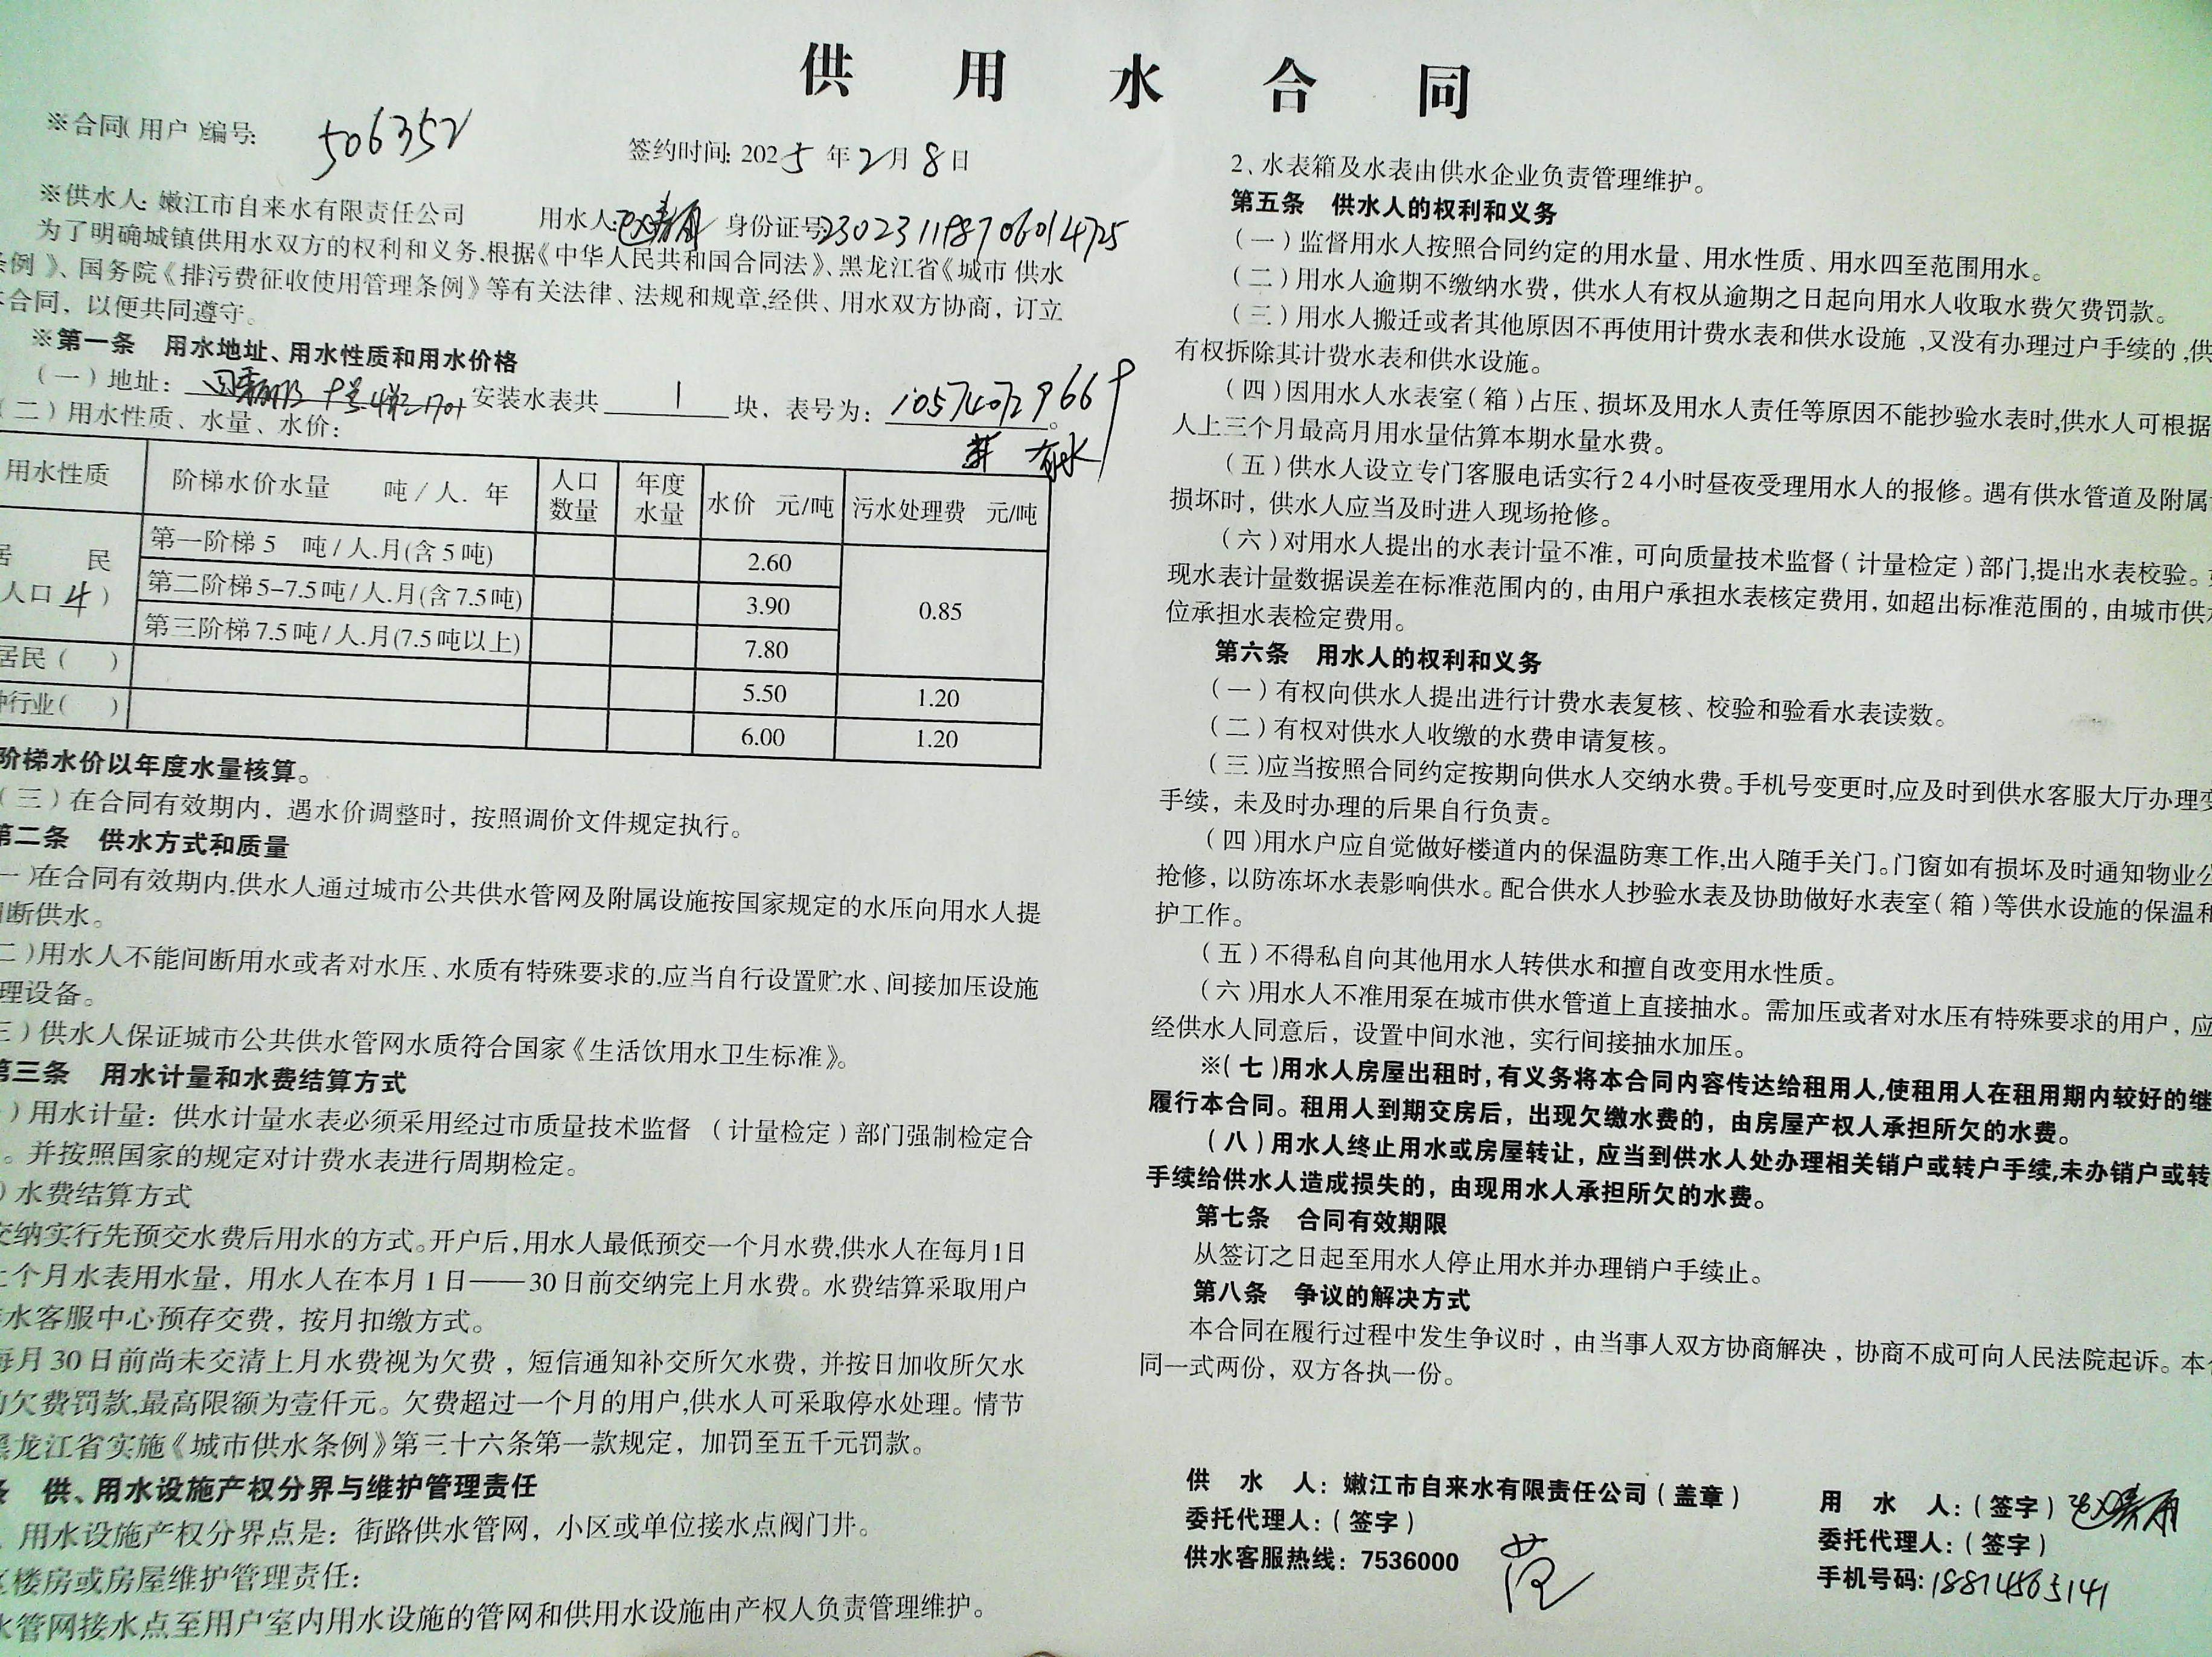 供用水合同
※合同(用户)编号: 506352
签约时间: 2025年2月8日
※供水人: 嫩江市自来水有限责任公司 用水人: 身份证号
为了明确城镇供用水双方的权利和义务,根据《中华人民共和国合同法》、黑龙江省《城市 供水
条例》、国务院《排污费征收使用管理条例》等有关法律、法规和规章,经供、用水双方协商，订立
合同，以便共同遵守。
※第一条 用水地址、用水性质和用水价格
(一)地址: 安装水表共 1 块，表号为:
(二)用水性质、水量、水价:
有水
用水性质 阶梯水价水量 吨/人.年 人口数量 年度水量 水价 元/吨 污水处理费 元/吨
居民 第一阶梯5 吨/人.月(含5吨) 2.60
人口4) 第二阶梯5-7.5吨/人.月(含7.5吨) 3.90 0.85
第三阶梯7.5吨/人.月(7.5吨以上) 7.80
居民( ) 5.50 1.20
行业( ) 6.00 1.20
阶梯水价以年度水量核算。
(三)在合同有效期内，遇水价调整时，按照调价文件规定执行。
第二条 供水方式和质量
一)在合同有效期内,供水人通过城市公共供水管网及附属设施按国家规定的水压向用水人提
断供水。
二)用水人不能间断用水或者对水压、水质有特殊要求的,应当自行设置贮水、间接加压设施
理设备。
三)供水人保证城市公共供水管网水质符合国家《生活饮用水卫生标准》。
第三条 用水计量和水费结算方式
)用水计量：供水计量水表必须采用经过市质量技术监督 (计量检定)部门强制检定合
。并按照国家的规定对计费水表进行周期检定。
)水费结算方式
交纳实行先预交水费后用水的方式。开户后,用水人最低预交一个月水费,供水人在每月1日
个月水表用水量，用水人在本月1日——30日前交纳完上月水费。水费结算采取用户
水客服中心预存交费，按月扣缴方式。
每月30日前尚未交清上月水费视为欠费，短信通知补交所欠水费，并按日加收所欠水
欠费罚款,最高限额为壹仟元。欠费超过一个月的用户,供水人可采取停水处理。情节
黑龙江省实施《城市供水条例》第三十六条第一款规定，加罚至五千元罚款。
条 供、用水设施产权分界与维护管理责任
用水设施产权分界点是：街路供水管网，小区或单位接水点阀门井。
楼房或房屋维护管理责任:
水管网接水点至用户室内用水设施的管网和供用水设施由产权人负责管理维护。
2、水表箱及水表由供水企业负责管理维护。
第五条 供水人的权利和义务
(一)监督用水人按照合同约定的用水量、用水性质、用水四至范围用水。
(二)用水人逾期不缴纳水费，供水人有权从逾期之日起向用水人收取水费欠费罚款。
(三)用水人搬迁或者其他原因不再使用计费水表和供水设施,又没有办理过户手续的,供
有权拆除其计费水表和供水设施。
(四)因用水人水表室(箱)占压、损坏及用水人责任等原因不能抄验水表时,供水人可根据
人上三个月最高月用水量估算本期水量水费。
(五)供水人设立专门客服电话实行24小时昼夜受理用水人的报修。遇有供水管道及附属
损坏时，供水人应当及时进入现场抢修。
(六)对用水人提出的水表计量不准，可向质量技术监督(计量检定)部门,提出水表校验。
现水表计量数据误差在标准范围内的,由用户承担水表核定费用,如超出标准范围的,由城市供
位承担水表检定费用。
第六条 用水人的权利和义务
(一)有权向供水人提出进行计费水表复核、校验和验看水表读数。
(二)有权对供水人收缴的水费申请复核。
(三)应当按照合同约定按期向供水人交纳水费。手机号变更时,应及时到供水客服大厅办理变
手续，未及时办理的后果自行负责。
(四)用水户应自觉做好楼道内的保温防寒工作,出入随手关门。门窗如有损坏及时通知物业公
抢修，以防冻坏水表影响供水。配合供水人抄验水表及协助做好水表室(箱)等供水设施的保温和
护工作。
(五)不得私自向其他用水人转供水和擅自改变用水性质。
(六)用水人不准用泵在城市供水管道上直接抽水。需加压或者对水压有特殊要求的用户，应
经供水人同意后，设置中间水池，实行间接抽水加压。
※(七)用水人房屋出租时,有义务将本合同内容传达给租用人,使租用人在租用期内较好的继
履行本合同。租用人到期交房后，出现欠缴水费的，由房屋产权人承担所欠的水费。
(八)用水人终止用水或房屋转让，应当到供水人处办理相关销户或转户手续,未办销户或转
手续给供水人造成损失的，由现用水人承担所欠的水费。
第七条 合同有效期限
从签订之日起至用水人停止用水并办理销户手续止。
第八条 争议的解决方式
本合同在履行过程中发生争议时，由当事人双方协商解决，协商不成可向人民法院起诉。本合
同一式两份，双方各执一份。
供 水 人：嫩江市自来水有限责任公司(盖章)
委托代理人：(签字)
供水客服热线：7536000
用 水 人：(签字)
委托代理人：(签字)
手机号码: 18814563141